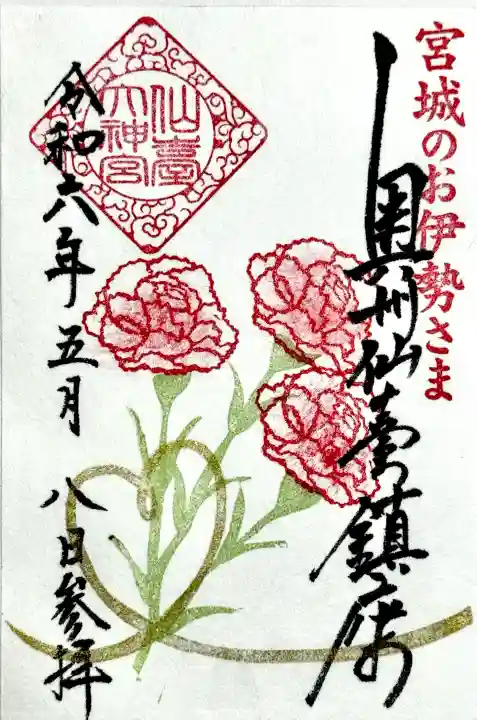 宮城のお伊勢さま
奥州仙臺鎮座
仙臺
大神宮
令和六年五月八日参拝